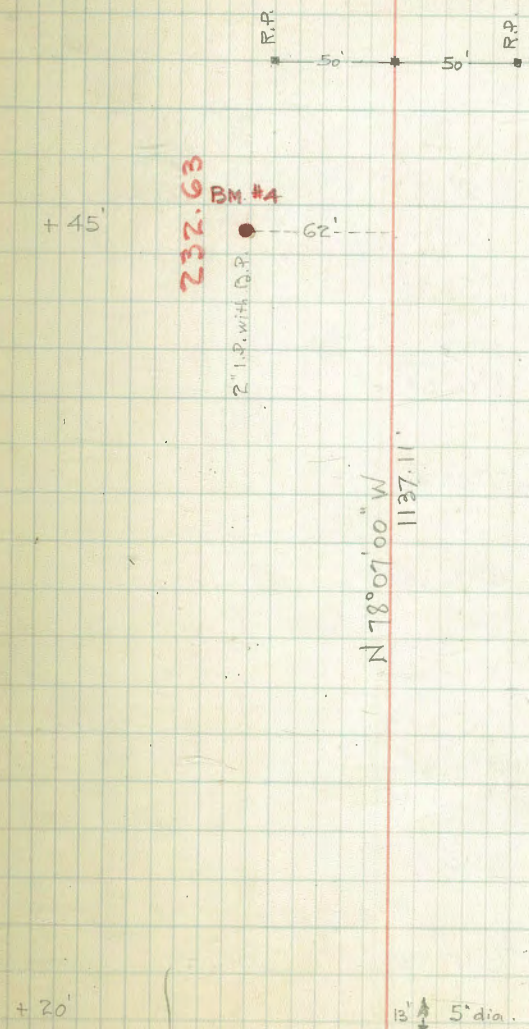 R.P. R.P.
50' 50'
232.63
BM. #4
+ 45' 62'
2" I.P. with B.P.
N 78°07'00" W
1137.11'
+ 20' 13' 5" dia.